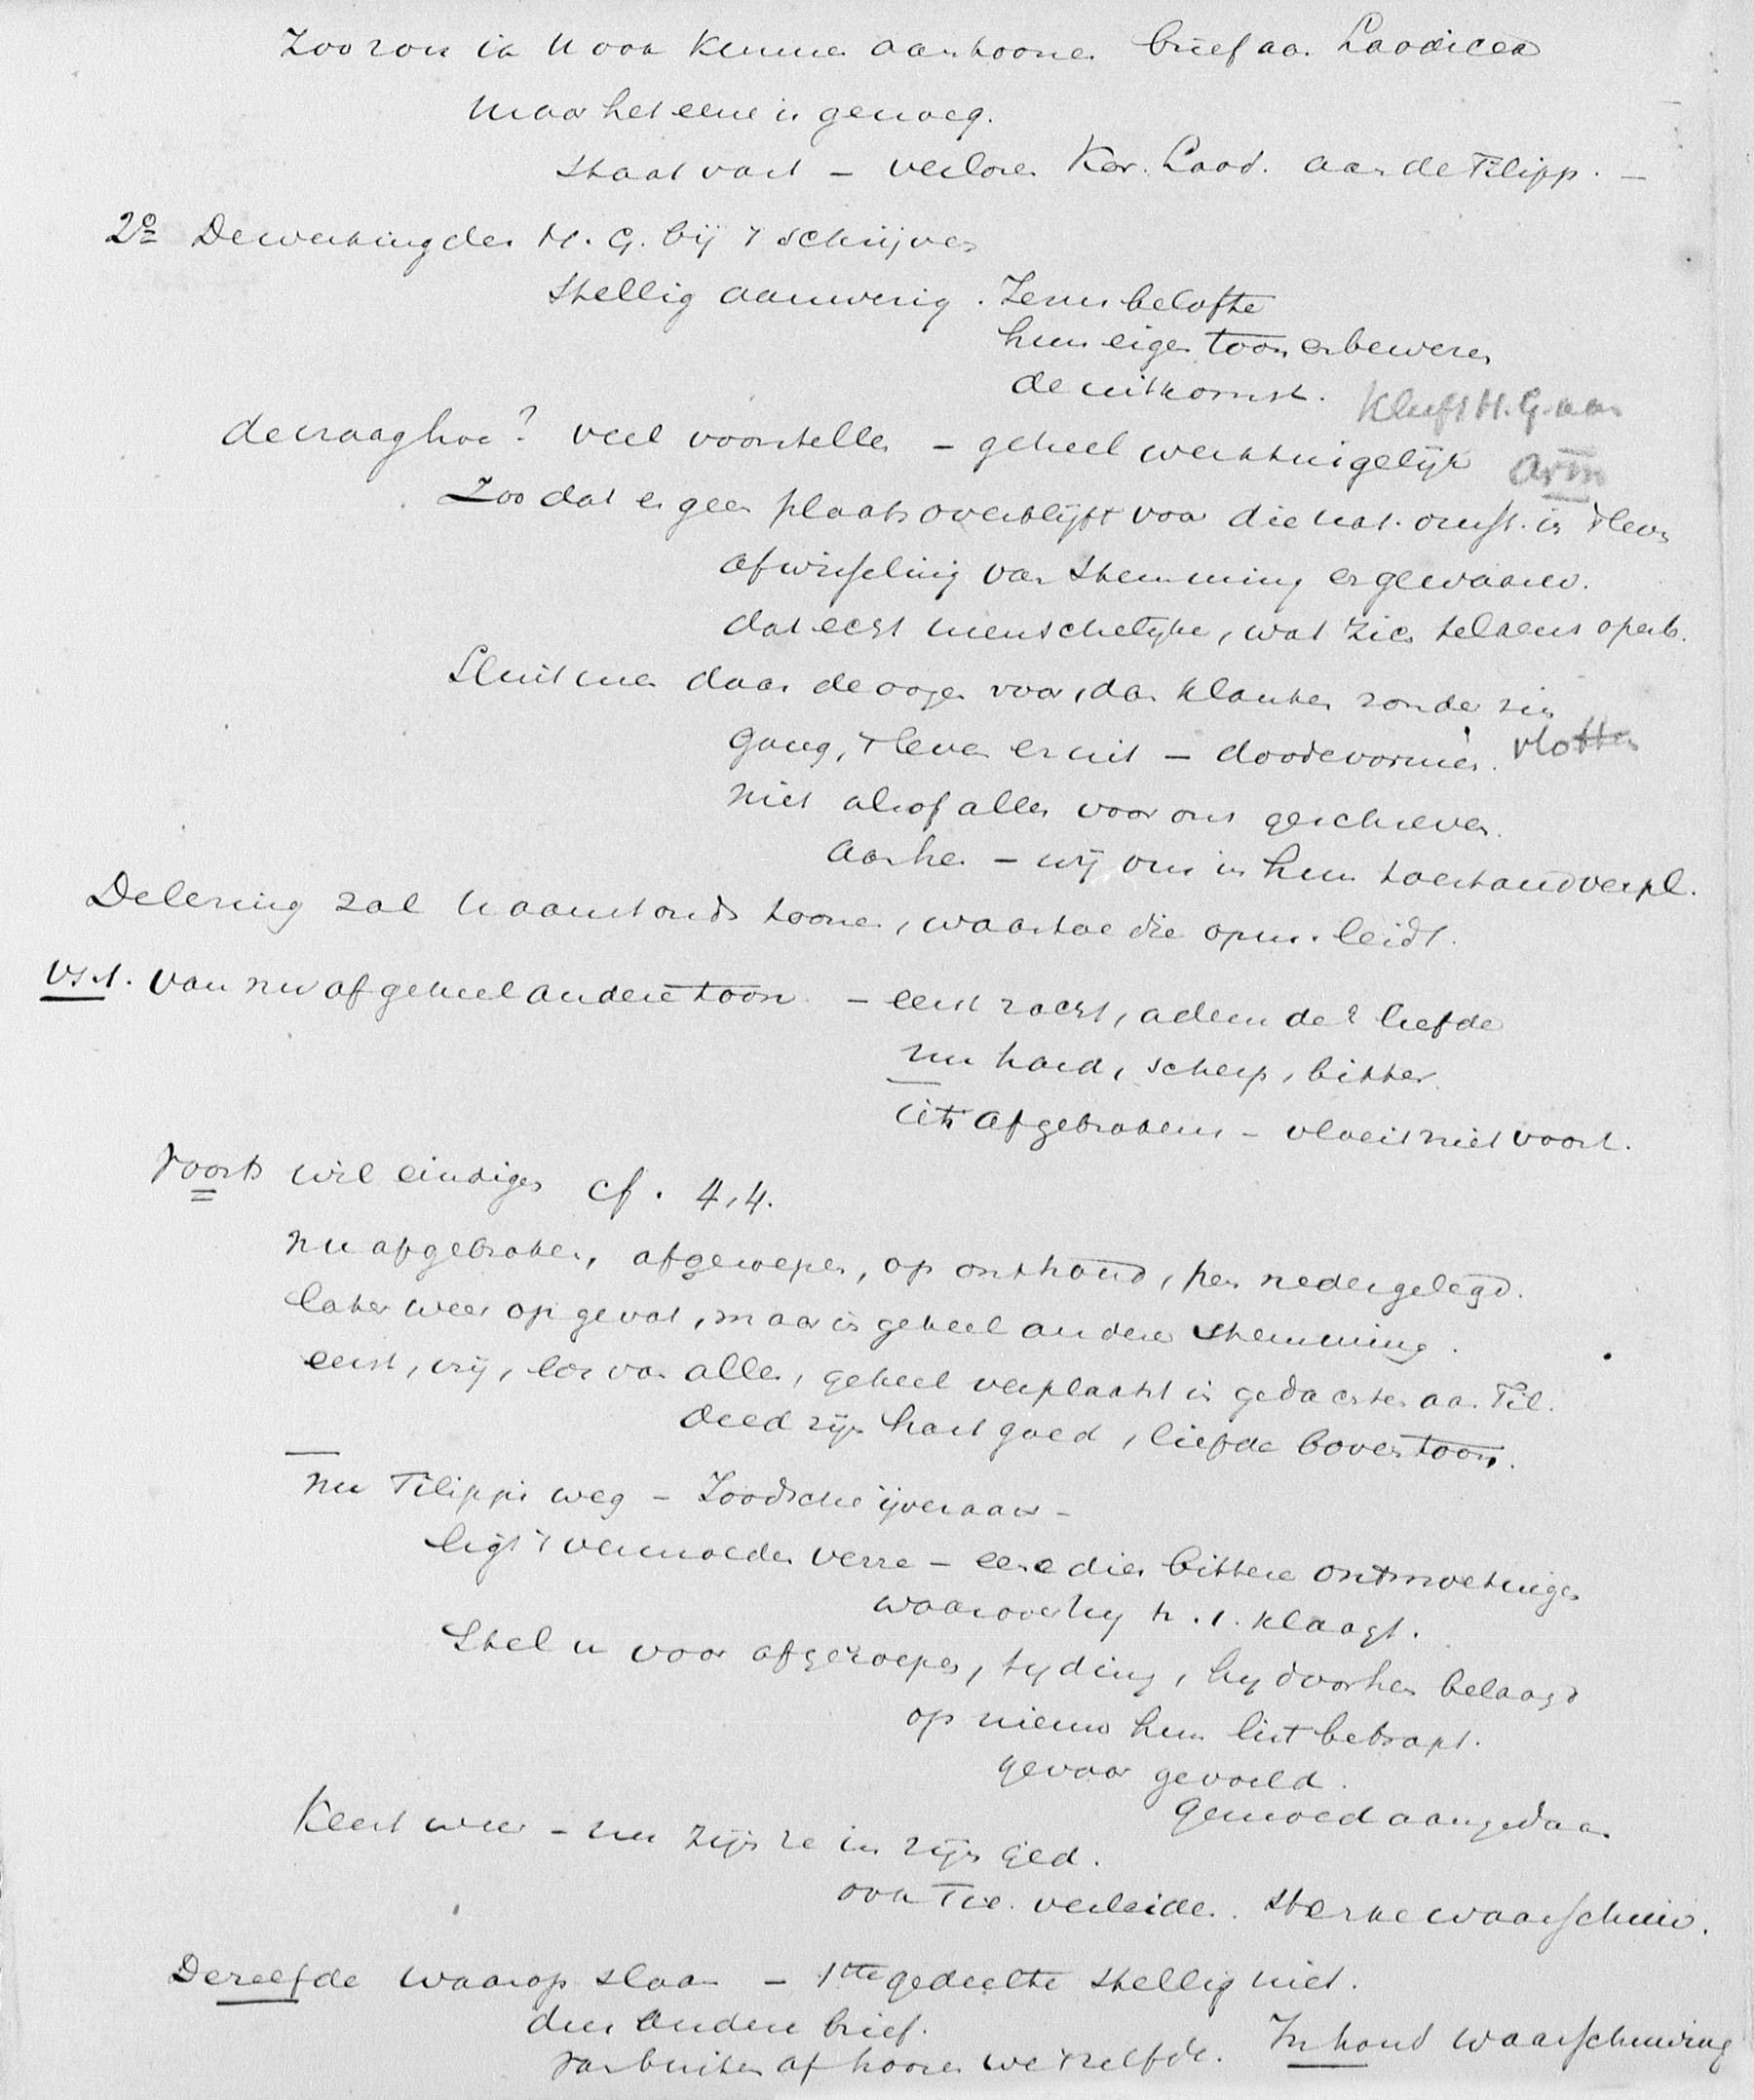 Zoo zou ik U ook kunnen aantoonen brief aan Laodicea
Maar het eene is genoeg.
Staat vast – verloren Kor. Laod. aan de Filipp. –
2º De werking des H. G. bij 't schrijven
Stellig aanwezig. Jezus belofte
hun eigen toon en beweren
de uitkomst.
de vraag hoe? veel voorstellen – geheel werktuigelijk
Kleeft H. G. aan
Arm
Zoo dat er geen plaats overblijft voor die nat. omst. in 't leven
afwisseling van stemming en gewaarw.
dat echt menschelijke, wat zich telkens openb.
Sluit men daar de oogen voor, dan klanken zonder zin
gang, 't leven er uit – doode vormen. vlotten
niet alsof alles voor ons geschreven.
aan hen – wij ons in hun toestand verpl.
De lezing zal U aanstonds toonen, waartoe die opm. leidt.
vs. 1. van nu af geheel andere toon – eerst zacht, ademde liefde
nu hard, scherp, bitter.
iets afgebrokens – vloeit niet voort.
Voorts wil eindigen cf. 4,4.
nu afgebroken, afgeroepen, op onthoud, pen nedergelegd.
later weer opgevat, maar in geheel andere stemming.
eerst, vrij, los van alles, geheel verplaatst in gedachten aan Fil.
deed zijn hart goed, liefde boventoon.
nu Filippi weg – Joodsche ijveraars –
ligt 't vermoeden verre – eene dier bittere ontmoetingen
waarover hij h. 1. klaagt.
Stel u voor afgeroepen, tijding, hij door hen belaagd
op nieuw hun list betrapt.
gevaar gevoeld.
gemoed aangedaan
Keert weer – nu zijn ze in zijn ged.
ook Fil. verleiden. Sterke waarschuw.
Dezelfde waarop slaan – 1ste gedeelte stellig niet.
den anderen brief.
van buiten af hooren we 't zelfde. Inhoud waarschuwing